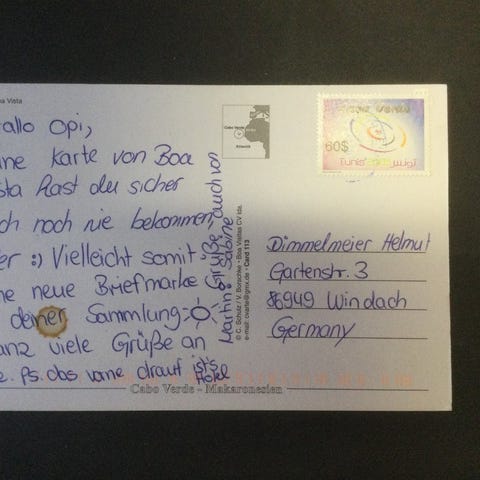 oa Vista
allo Opi,
ine Karte von Boa
sta hast du sicher
ch noch nie bekommen,
er :) Vielleicht somit
ne neue Briefmarke
deiner Sammlung
anz viele Grüße an
e. Ps. das vorne drauf ist's
Hotel
Grüße auch von
Martin Sabine
© C. Schutz / V. Borschke - Boa Vistas CV lda.
e-mail: ovarte@gmx.de - Card 113
Cabo Verde
Atlantik
CABO VERDE
60$
Tunis
تونس
Dimmelmeier Helmut
Gartenstr. 3
86949 Windach
Germany
Cabo Verde - Makaronesien